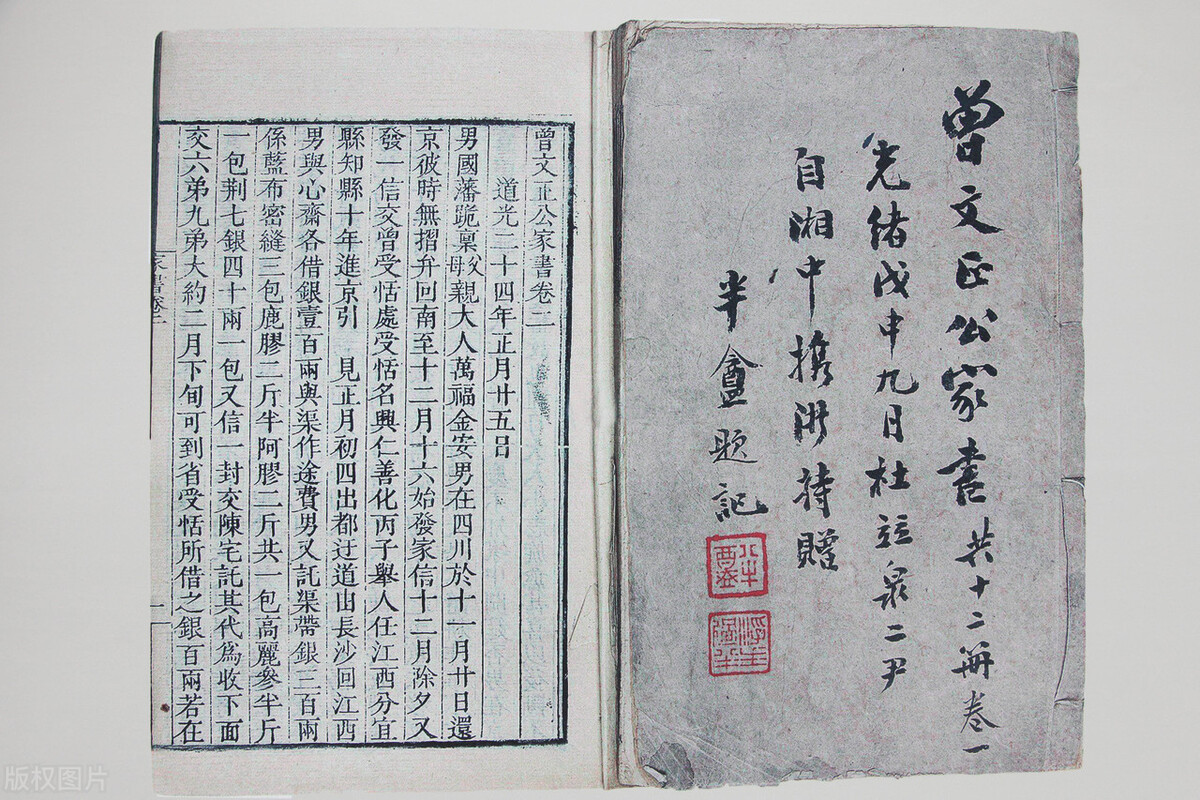 曾文正公家書共十二冊卷一
光緒戊申九月杜竝泉二尹
自湘中攜浙持贈
半盦題記
曾文正公家書卷二
道光二十四年正月廿五日
男國藩跪稟父母親大人萬福金安男在四川於十一月廿日還
京彼時無摺弁回南至十二月十六始發家信十二月除夕又
發一信交曾受恬處受恬名興仁善化丙子舉人任江西分宜
縣知縣十年進京引 見正月初四出都迂道由長沙回江西
男與心齋各借銀壹百兩與渠作途費男又託渠帶銀三百兩
係藍布密縫三包鹿膠二斤半阿膠二斤共一包高麗參半斤
一包荆七銀四十兩一包又信一封交陳宅託其代為收下面
交六弟九弟大約二月下旬可到省受恬所借之銀百兩若在
家書卷二
一
版权图片